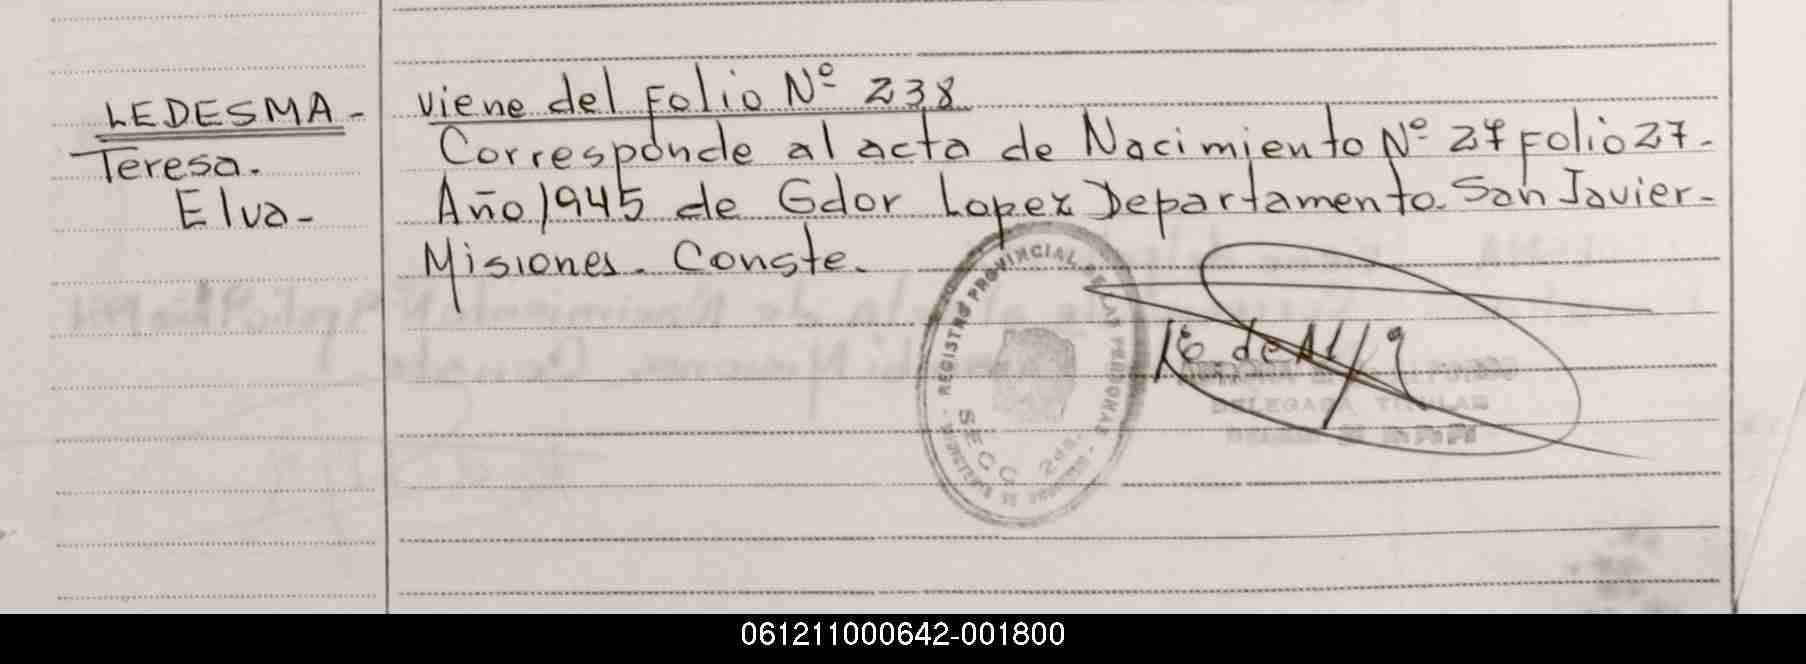 LEDESMA-
Teresa.
Elva-
viene del Folio Nº 238
Corresponde al acta de Nacimiento Nº 27 Folio 27-
Año 1945 de Gdor Lopez Departamento. San Javier-
Misiones. Conste.
REGISTRO PROVINCIAL DE LAS PERSONAS
SECC
DELEGADA TITULAR
061211000642-001800